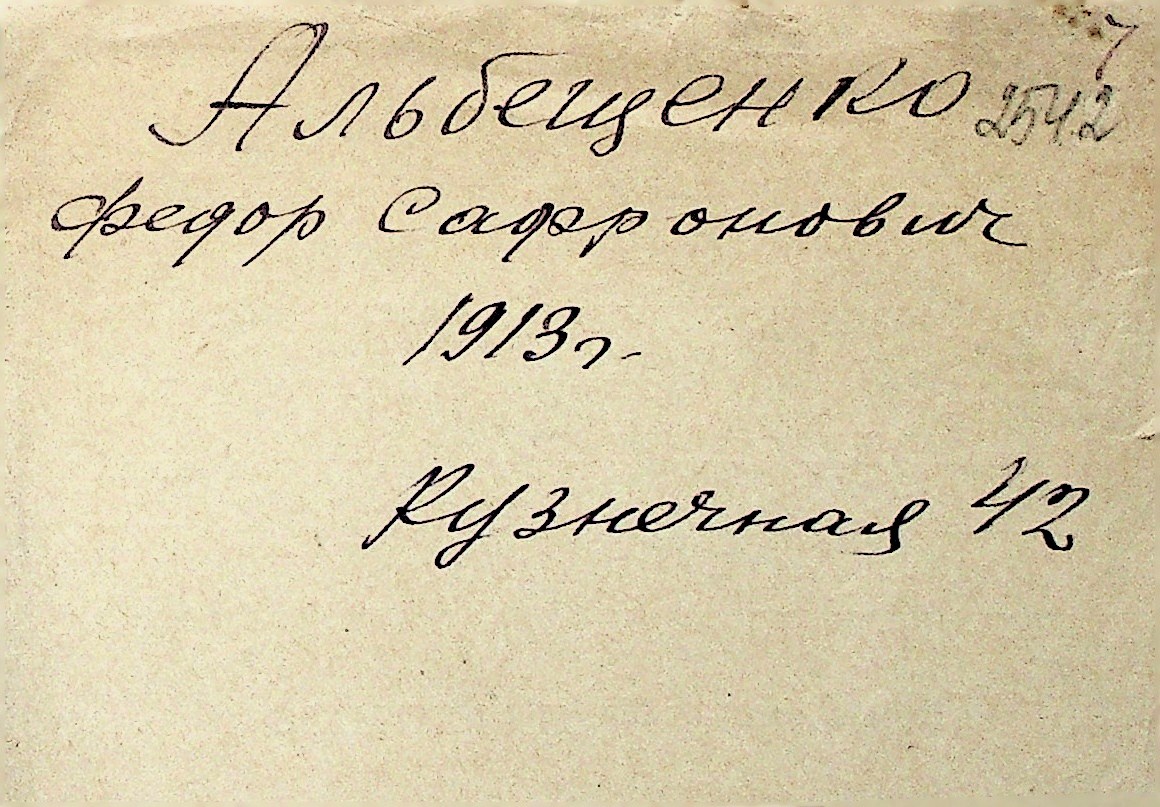 7
Альбещенко 2542
федор Сафронович
1913г.
Кузнечная 42